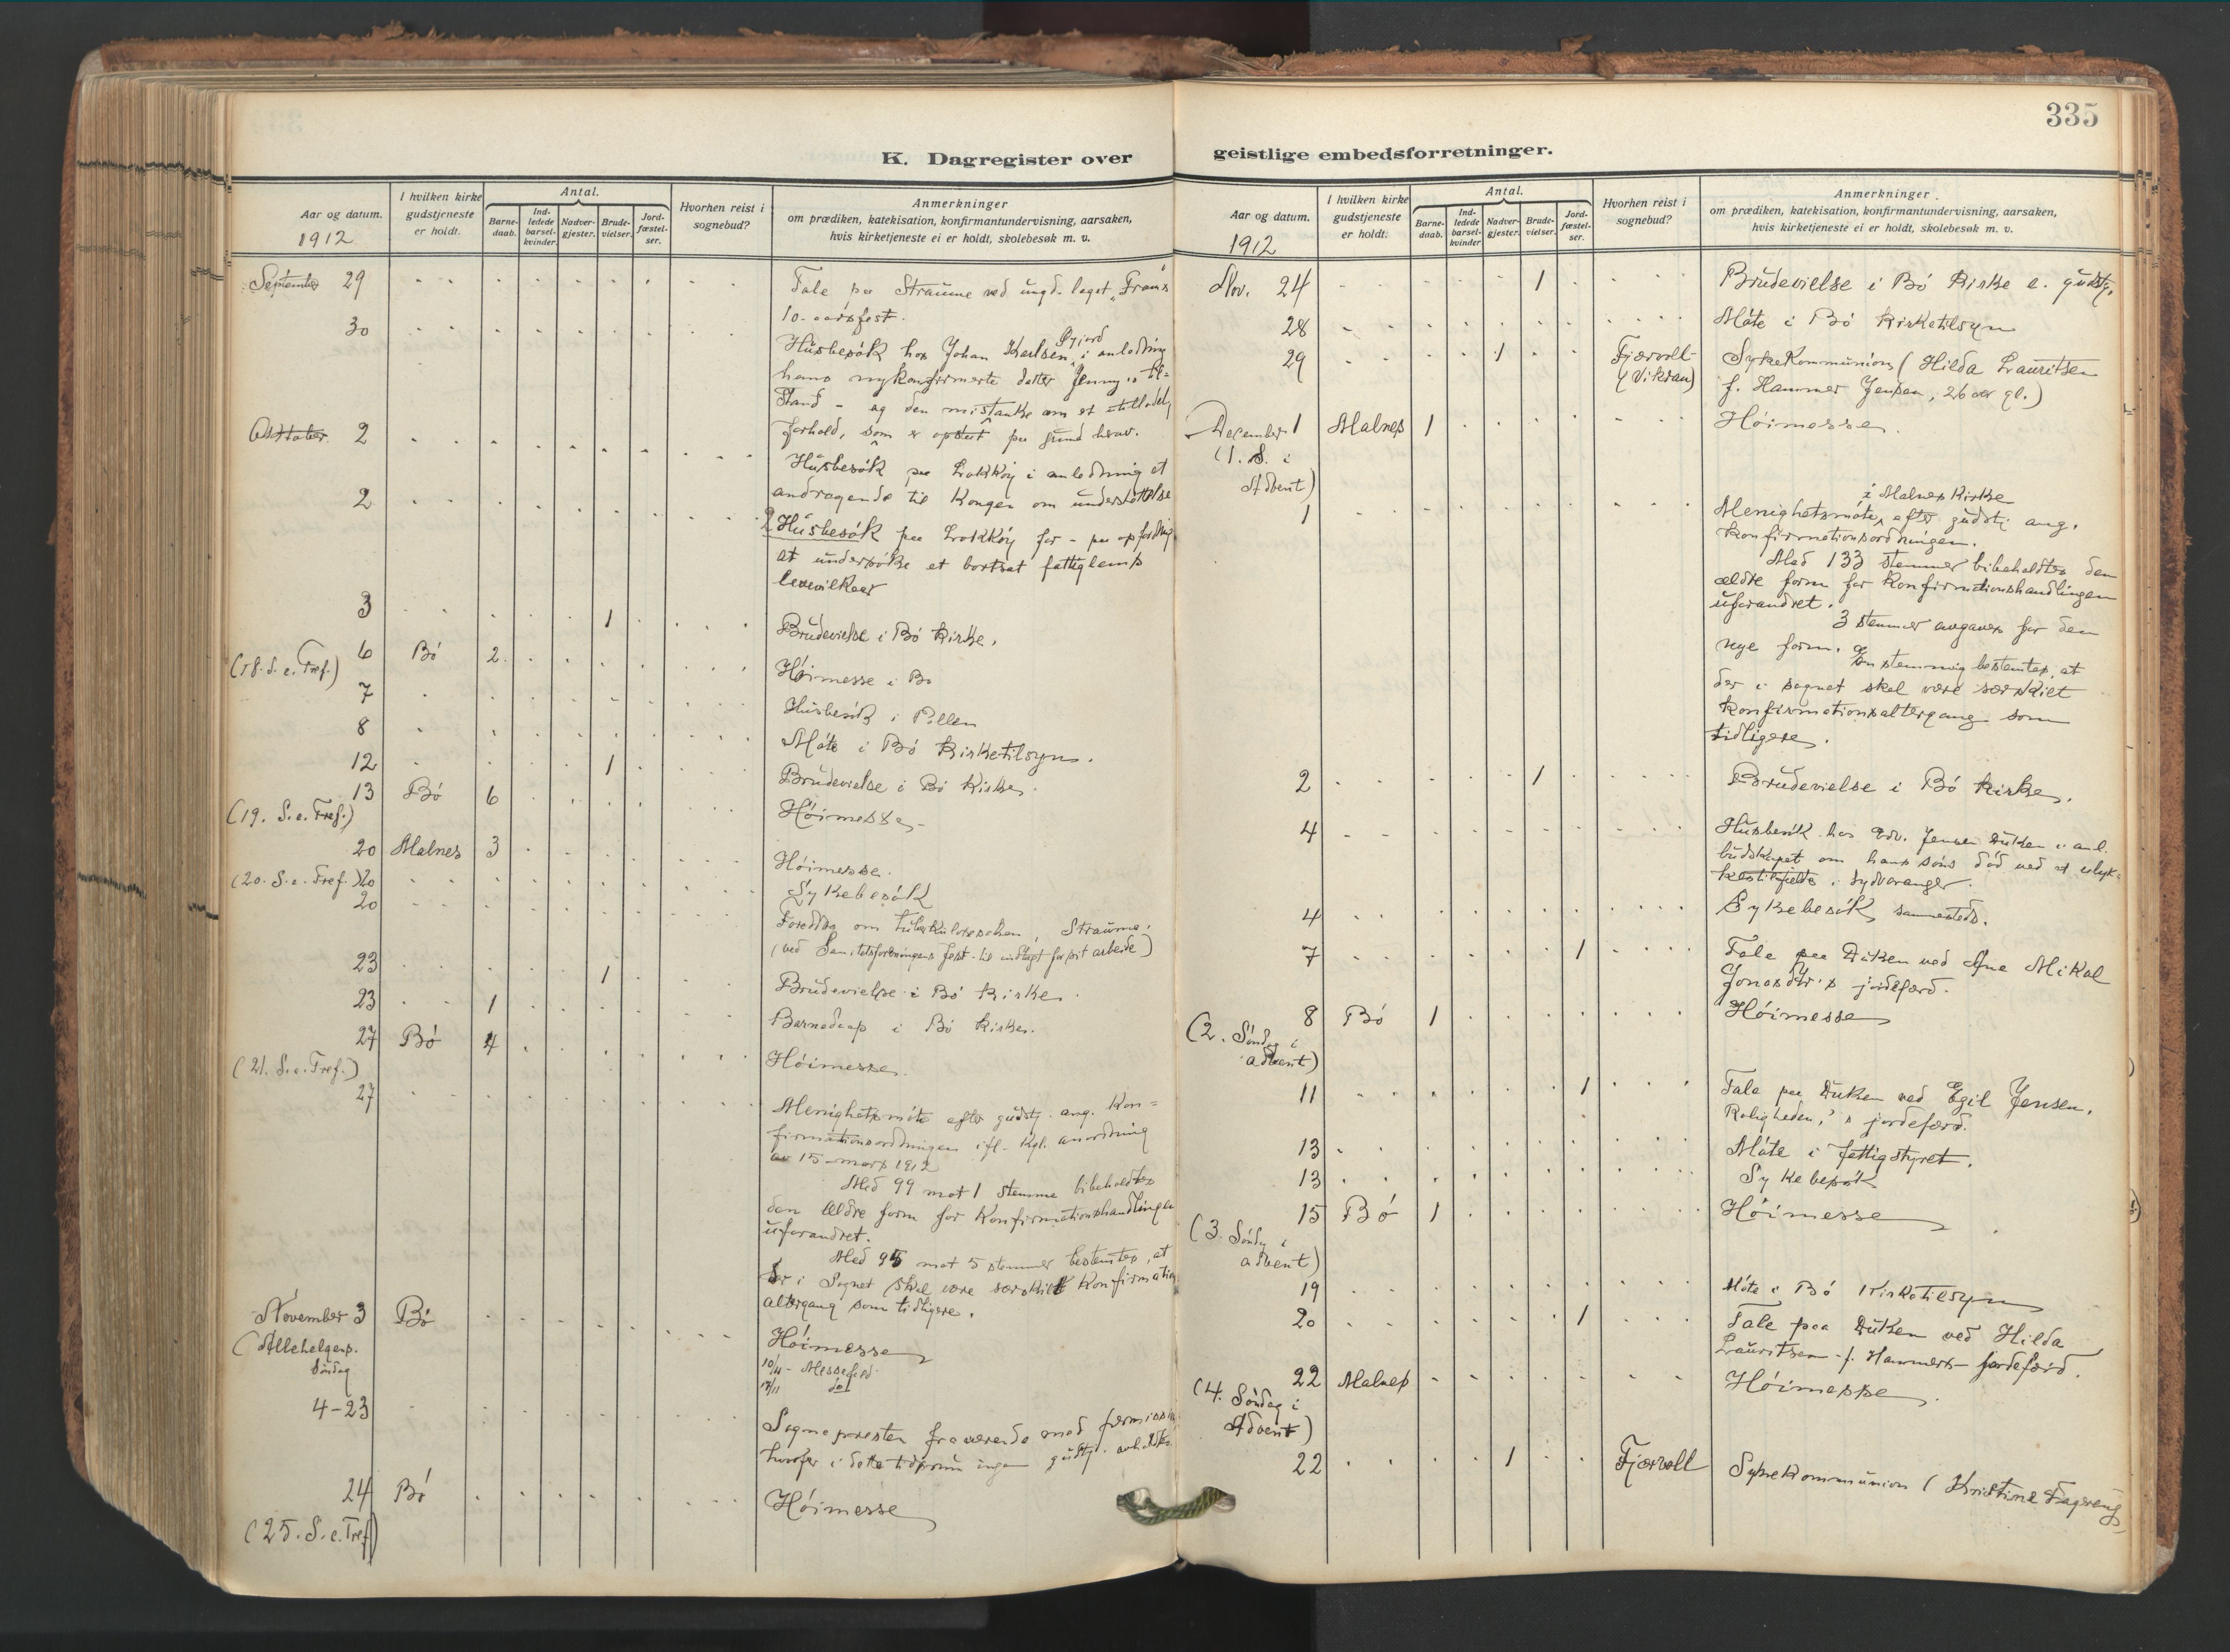 335
K. Dagregister over geistlige embedsforretninger.
Aar og datum.
1912
I hvilken kirke gudstjeneste er holdt.
Antal.
Barnedaab.
Indledede barselkvinder.
Nadvergjester.
Brudevielser.
Jordfæstelser.
Hvorhen reist i sognebud?
Anmerkninger
om prædiken, katekisation, konfirmantundervisning, aarsaken,
hvis kirketjeneste ei er holdt, skolebesøk m. v.
September 29 Tale paa Straume ved ungd. laget "Fram"s
10-aarsfest.
30 Husbesök hos Johan Karlsen, i anledning
hans nykonfirmerte datter Jenny's til=
stand - og den mistanke om et utilladel.
forhold, som er opstaat paa grund herav.
Oktober 2 Husbesök paa Lokköy i anledning et
andragende til Kongen om understöttelse
2 Husbesök paa Lokköy for - paa opfordring
at undersöke et bortsat fattiglems
levevilkaar
3 1 Brudevielse i Bö Kirke.
6 Bö 2 Höimesse i Bö
(18. S. e. Tref.)
7 Husbesök i Pollen
8 Möte i Bö Kirketilsyn.
12 1 Brudevielse i Bö Kirke.
13 Bö 6 Höimesse
(19. S. e. Tref.)
20 Malnes 3 Höimesse.
(20. S. e. Tref.) 20 Sykebesök
20 Foredrag om tuberkulosesaken, Straume.
(ved Sanitetsforeningens fest - til indtægt for sit arbeide)
23 1 Brudevielse i Bö Kirke.
23 1 Barnedaap i Bö Kirke.
27 Bö 4 Höimesse.
(21. S. e. Tref.)
27 Menighetsmöte efter gudstj. ang. Kon=
firmationsordningen ifl. Kgl. anordning
av 15 mars 1912
Med 99 mot 1 stemme bibeholdtes
den ældre form for Konfirmationshandlingen
uforandret.
Med 95 mot 5 stemmer bestemtes, at
der i Sognet skal være særskilt Konfirmations
altergang som tidligere.
November 3 Bö Höimesse
(Allehelgens.
Söndag
10/11 - Messefald
17/11 do
4-23 Sognepresten fraværende med permission
hvorfor i dette tidsrum ingen gudstj. avholdtes.
24 Bö Höimesse
(25. S. e. Tref)
Aar og datum.
1912
I hvilken kirke gudstjeneste er holdt.
Antal.
Barnedaab.
Indledede barselkvinder
Nadvergjester.
Brudevielser.
Jordfæstelser.
Hvorhen reist i sognebud?
Anmerkninger.
om prædiken, katekisation, konfirmantundervisning, aarsaken,
hvis kirketjeneste ei er holdt, skolebesøk m. v.
Nov. 24 1 Brudevielse i Bö Kirke e. gudstj.
28 Möte i Bö Kirketilsyn
29 1 Fjærvoll Sykekommunion (Hilda Lauritsen
(Vikran) f. Hammer Jensen, 26 aar gl.)
December 1 Malnes 1 Höimesse.
(1. S. i
Advent)
1 Menighetsmöte i Malnes Kirke efter gudstj. ang.
Konfirmationsordningen.
Med 133 stemmer bibeholdtes den
ældre form for Konfirmationshandlingen
uforandret.
3 stemmer avgaves for den
nye form. Enstemmig bestemtes, at
der i sognet skal være særskilt
Konfirmationsaltergang som
tidligere.
2 1 Brudevielse i Bö Kirke.
4 Husbesök hos Edv. Jensen Uteen i anl.
budskapet om hans söns död ved et ulyk=
kestilfælde i Sydvaranger.
4 Sykebesök sammesteds.
7 1 Tale paa Uteen ved Ane Mikal
Jonasdtr.s jordefærd.
8 Bö 1 Höimesse
(2. Söndag i
advent)
11 1 Tale paa Uteen ved Egil Jensen,
Roligheden,'s jordefærd.
13 Möte i fattigstyret.
13 Sykebesök
15 Bö 1 Höimesse
(3. Söndg i
advent)
19 Möte i Bö Kirketilsyn
20 1 Tale paa Uteen ved Hilda
Lauritsen f. Hammers jordefærd.
22 Malnes Höimesse.
(4. Söndag i
Advent)
22 1 Fjærvoll Sykekommunion (Kristine Fagereng